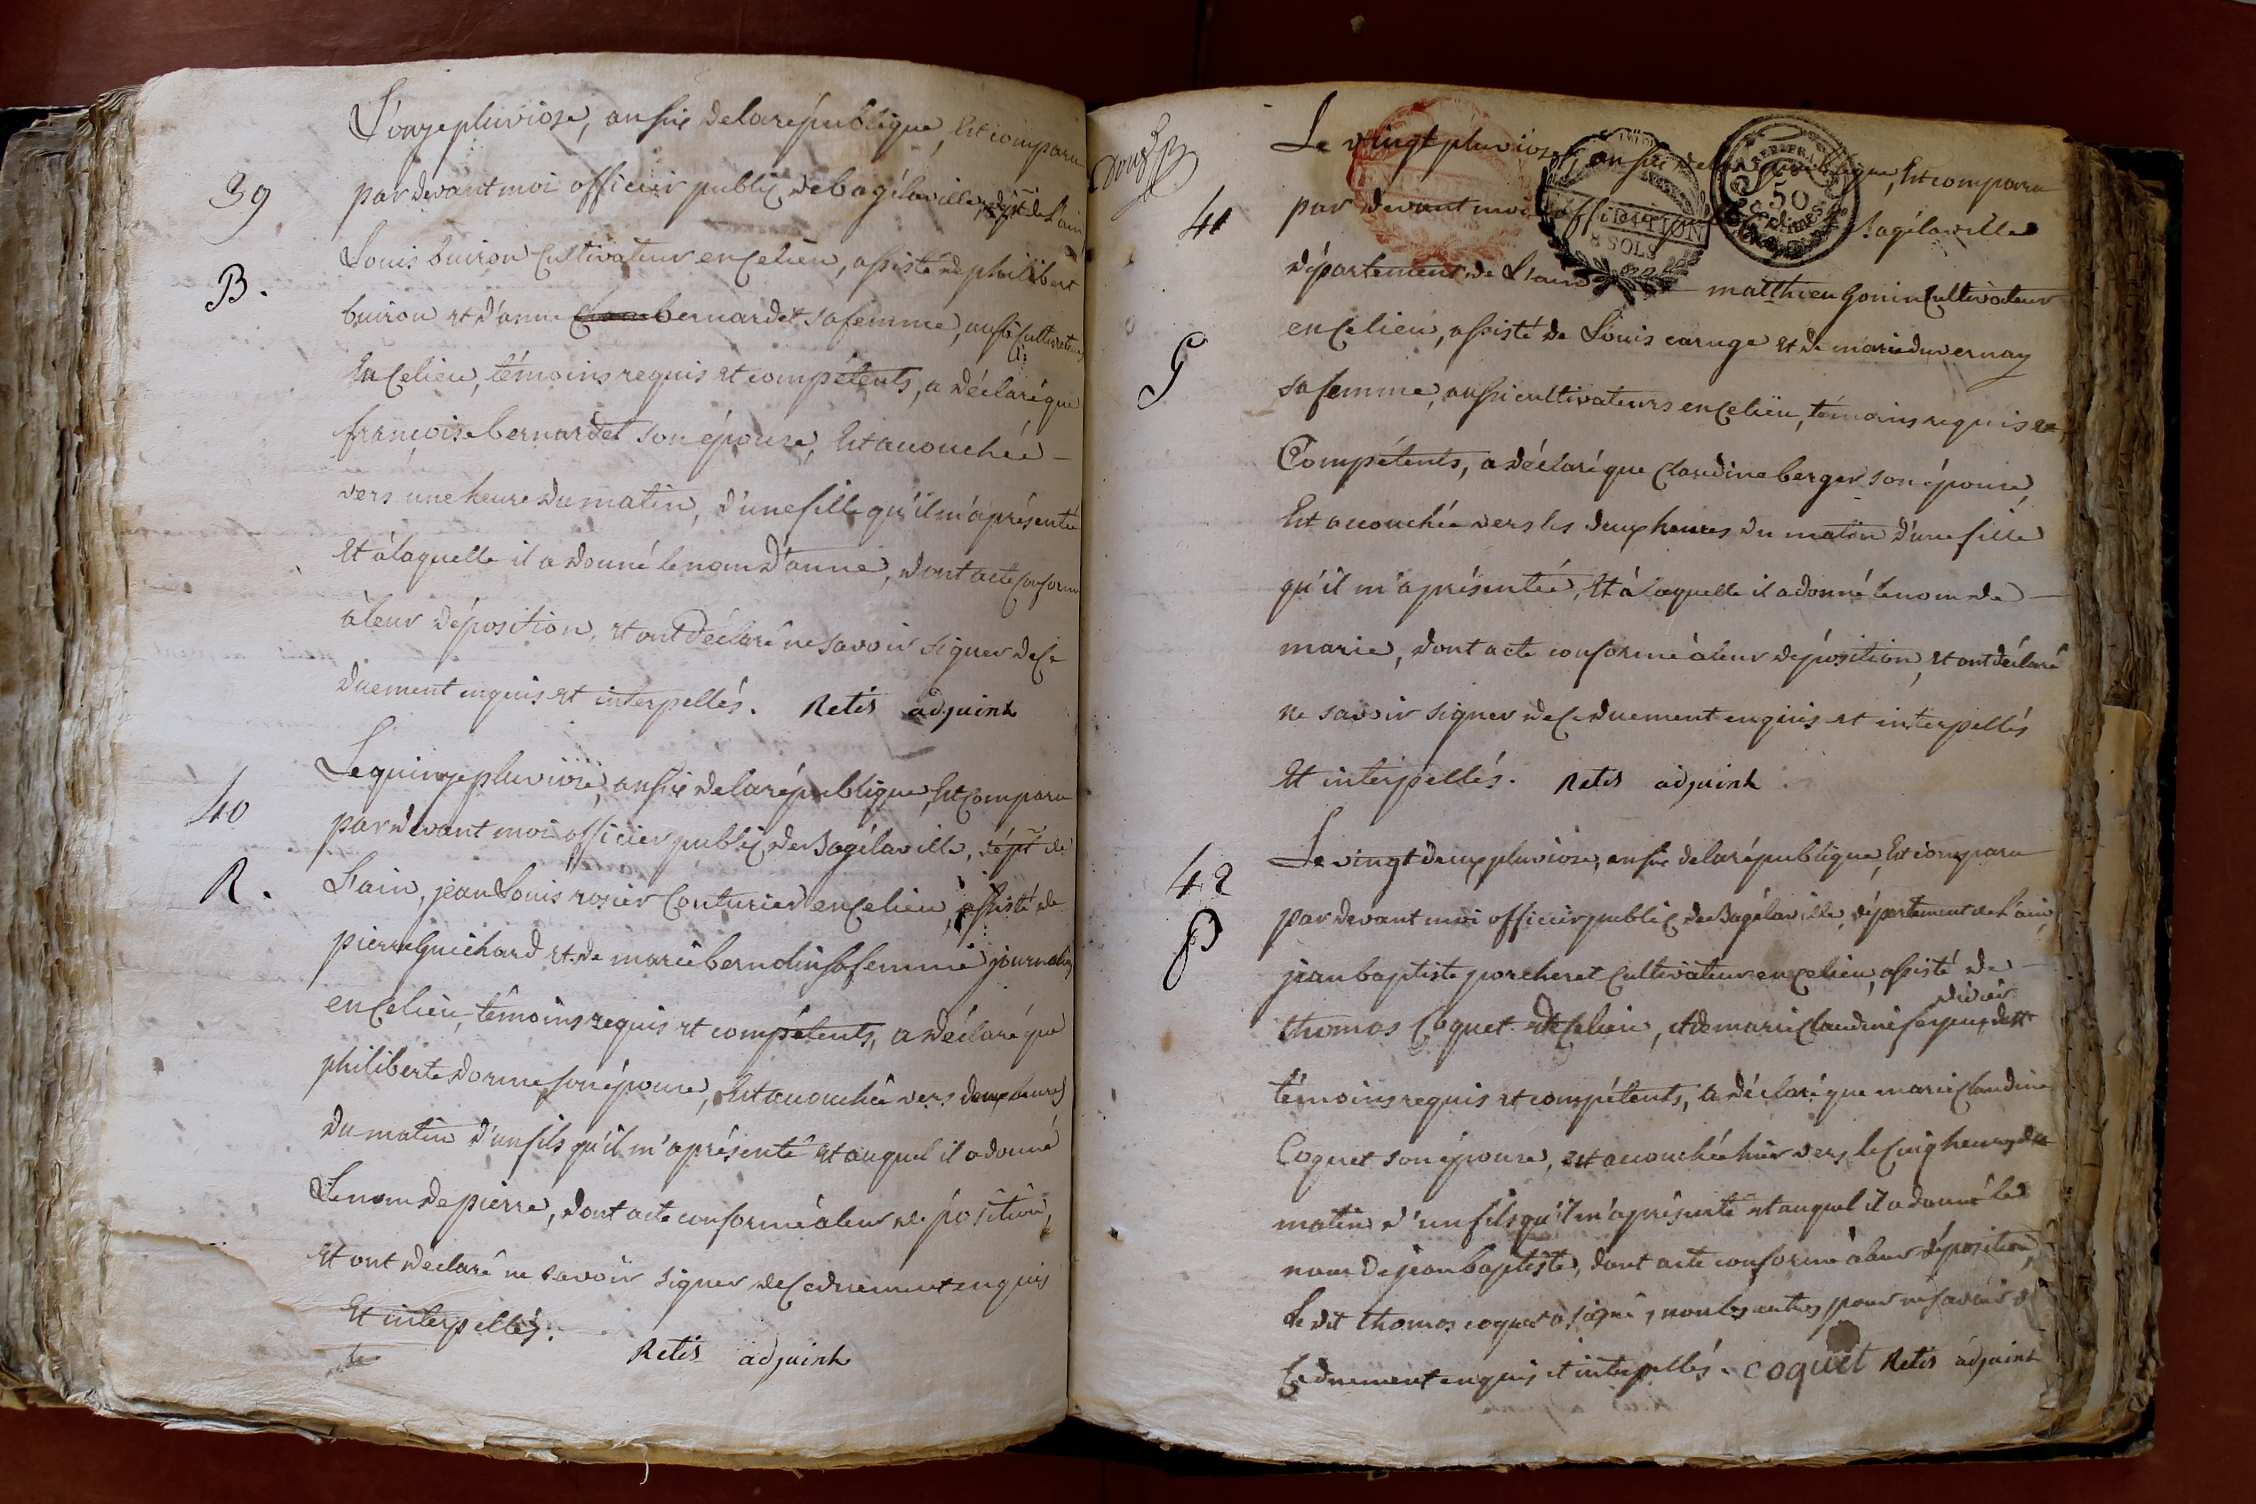 L'onze pluviose, an six de la république, Est comparu
39
par devant moi officier public de bagélaville, dépt. de L'ain
B.
Louis buiron Cultivateur en Ce lieu, assisté de philibert
buiron et d'anne bernardet sa femme, aussi Cultivateurs
En Ce lieu, témoins requis et compétents, a déclaré que
françoise bernardet son épouse, Est accouchée
vers une heure du matin, d'une fille qu'il m'a présentée
Et à laquelle il a donné le nom d'anne, dont acte Conforme
à leur déposition, et ont déclaré ne savoir signer de Ce
duement enquis et interpellés. Retis adjoint
Le quinze pluviose, an six de la république, Est Comparu
40
par devant moi officier public de Bagélaville, dépt. de
R.
L'ain, jean Louis rosier Couturier en Ce lieu, assisté de
pierre Guichard et de marie berndin sa femme journaliers
en Ce lieu, témoins requis et compétents, a déclaré que
philiberte dorme son épouse, Est accouchée vers deux heures
du matin d'un fils qu'il m'a présenté et auquel il a donné
Le nom de pierre, dont acte conforme à leur déposition,
Et ont déclaré ne savoir signer de Ce duement enquis
Et interpellés.
Retis adjoint
Le vingt pluviose, an six de la république, Est comparu
41
par devant moi officier Bagélaville
50
8 SOLS
département de L'ain matthieu Gonin Cultivateur
G
en Ce lieu, assisté de Louis caruge et de marie duvernay
sa femme, aussi cultivateurs en Ce lieu, témoins requis et
Compétents, a déclaré que Claudine berger son épouse,
Est accouchée vers les deux heures du matin d'une fille
qu'il m'a présentée, Et à laquelle il a donné le nom de
marie, dont acte conforme à leur déposition, et ont déclaré
ne savoir signer de Ce duement enquis et interpellés
Et interpellés. Retis adjoint
Le vingt deux pluviose, an six de la république, Est comparu
42
par devant moi officier public de Bagélaville, département de L'ain,
P
jean baptiste porcheret Cultivateur en Ce lieu, assisté de
thomas Coquet de Ce lieu, et de marie Claudine
témoins requis et compétents, a déclaré que marie Claudine
Coquet son épouse, est accouchée hier vers les Cinq heures du
matin d'un fils qu'il m'a présenté et auquel il a donné le
nom de jean baptiste, dont acte conforme à leur déposition,
Le dit thomas coquet a signé, non les autres pour ne savoir de
Ce duement enquis et interpellés. coquet Retis adjoint